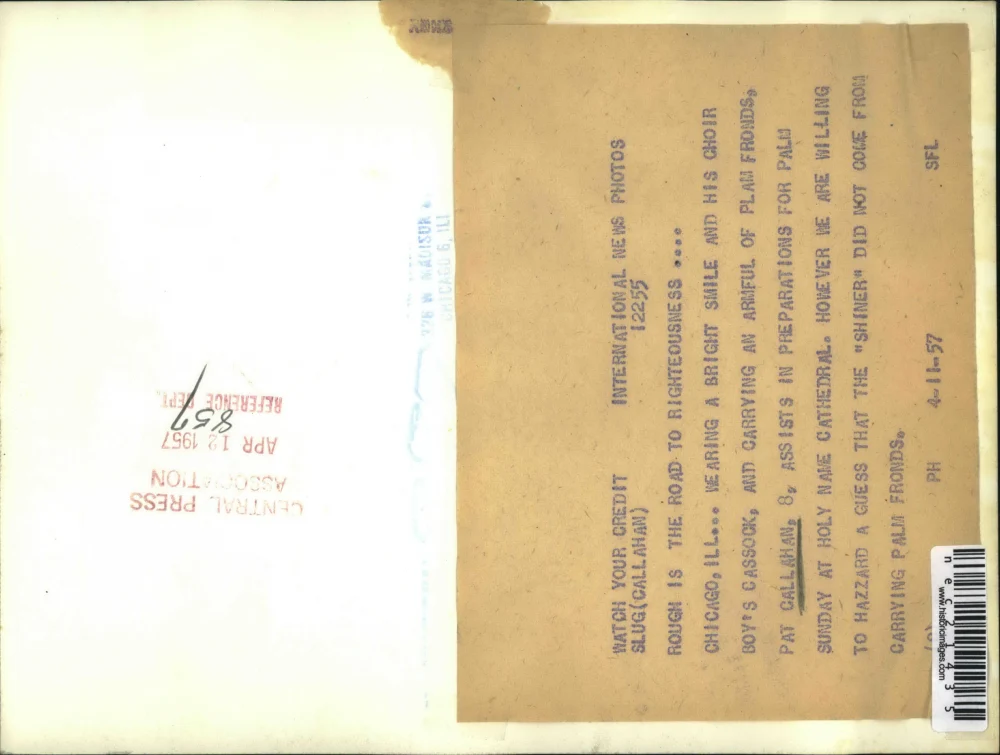 WATCH YOUR CREDIT INTERNATIONAL NEWS PHOTOS
SLUG(CALLAHAN) 12255
ROUGH IS THE ROAD TO RIGHTEOUSNESS ....
CHICAGO, ILL... WEARING A BRIGHT SMILE AND HIS CHOIR
BOY'S CASSOCK, AND CARRYING AN ARMFUL OF PLAM FRONDS,
PAT CALLAHAN, 8, ASSISTS IN PREPARATIONS FOR PALM
SUNDAY AT HOLY NAME CATHEDRAL. HOWEVER WE ARE WILLING
TO HAZZARD A GUESS THAT THE "SHINER" DID NOT COME FROM
CARRYING PALM FRONDS.
PH 4-11-57 SFL
CENTRAL PRESS
ASSOCIATION
APR 12 1957
857
REFERENCE DEPT.
W MADISON
CHICAGO 6, ILL
www.historicimages.com
nec21435